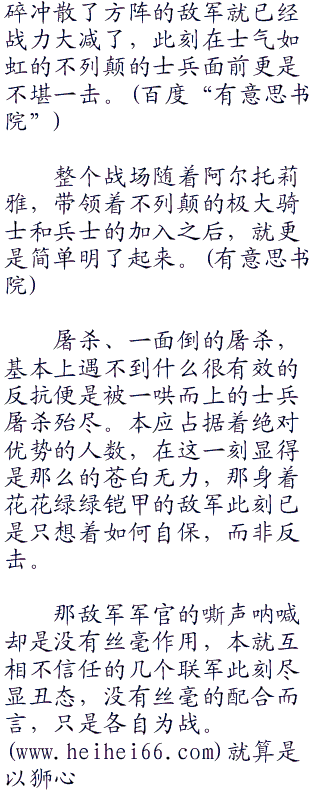 碎冲散了方阵的敌军就已经
战力大减了，此刻在士气如
虹的不列颠的士兵面前更是
不堪一击。(百度“有意思书
院”)
整个战场随着阿尔托莉
雅，带领着不列颠的极大骑
士和兵士的加入之后，就更
是简单明了起来。(有意思书
院)
屠杀、一面倒的屠杀，
基本上遇不到什么很有效的
反抗便是被一哄而上的士兵
屠杀殆尽。本应占据着绝对
优势的人数，在这一刻显得
是那么的苍白无力，那身着
花花绿绿铠甲的敌军此刻已
是只想着如何自保，而非反
击。
那敌军军官的嘶声呐喊
却是没有丝毫作用，本就互
相不信任的几个联军此刻尽
显丑态，没有丝毫的配合而
言，只是各自为战。
(www.heihei66.com)就算是
以狮心